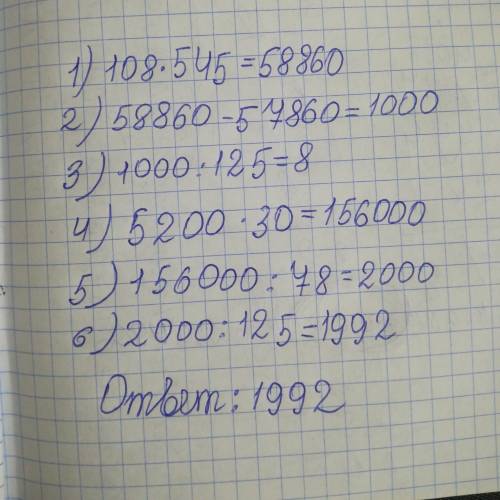 1) 108·545=58860
2) 58860-57860=1000
3) 1000:125=8
4) 5200·30=156000
5) 156000:78=2000
6) 2000:125=1992
Ответ: 1992